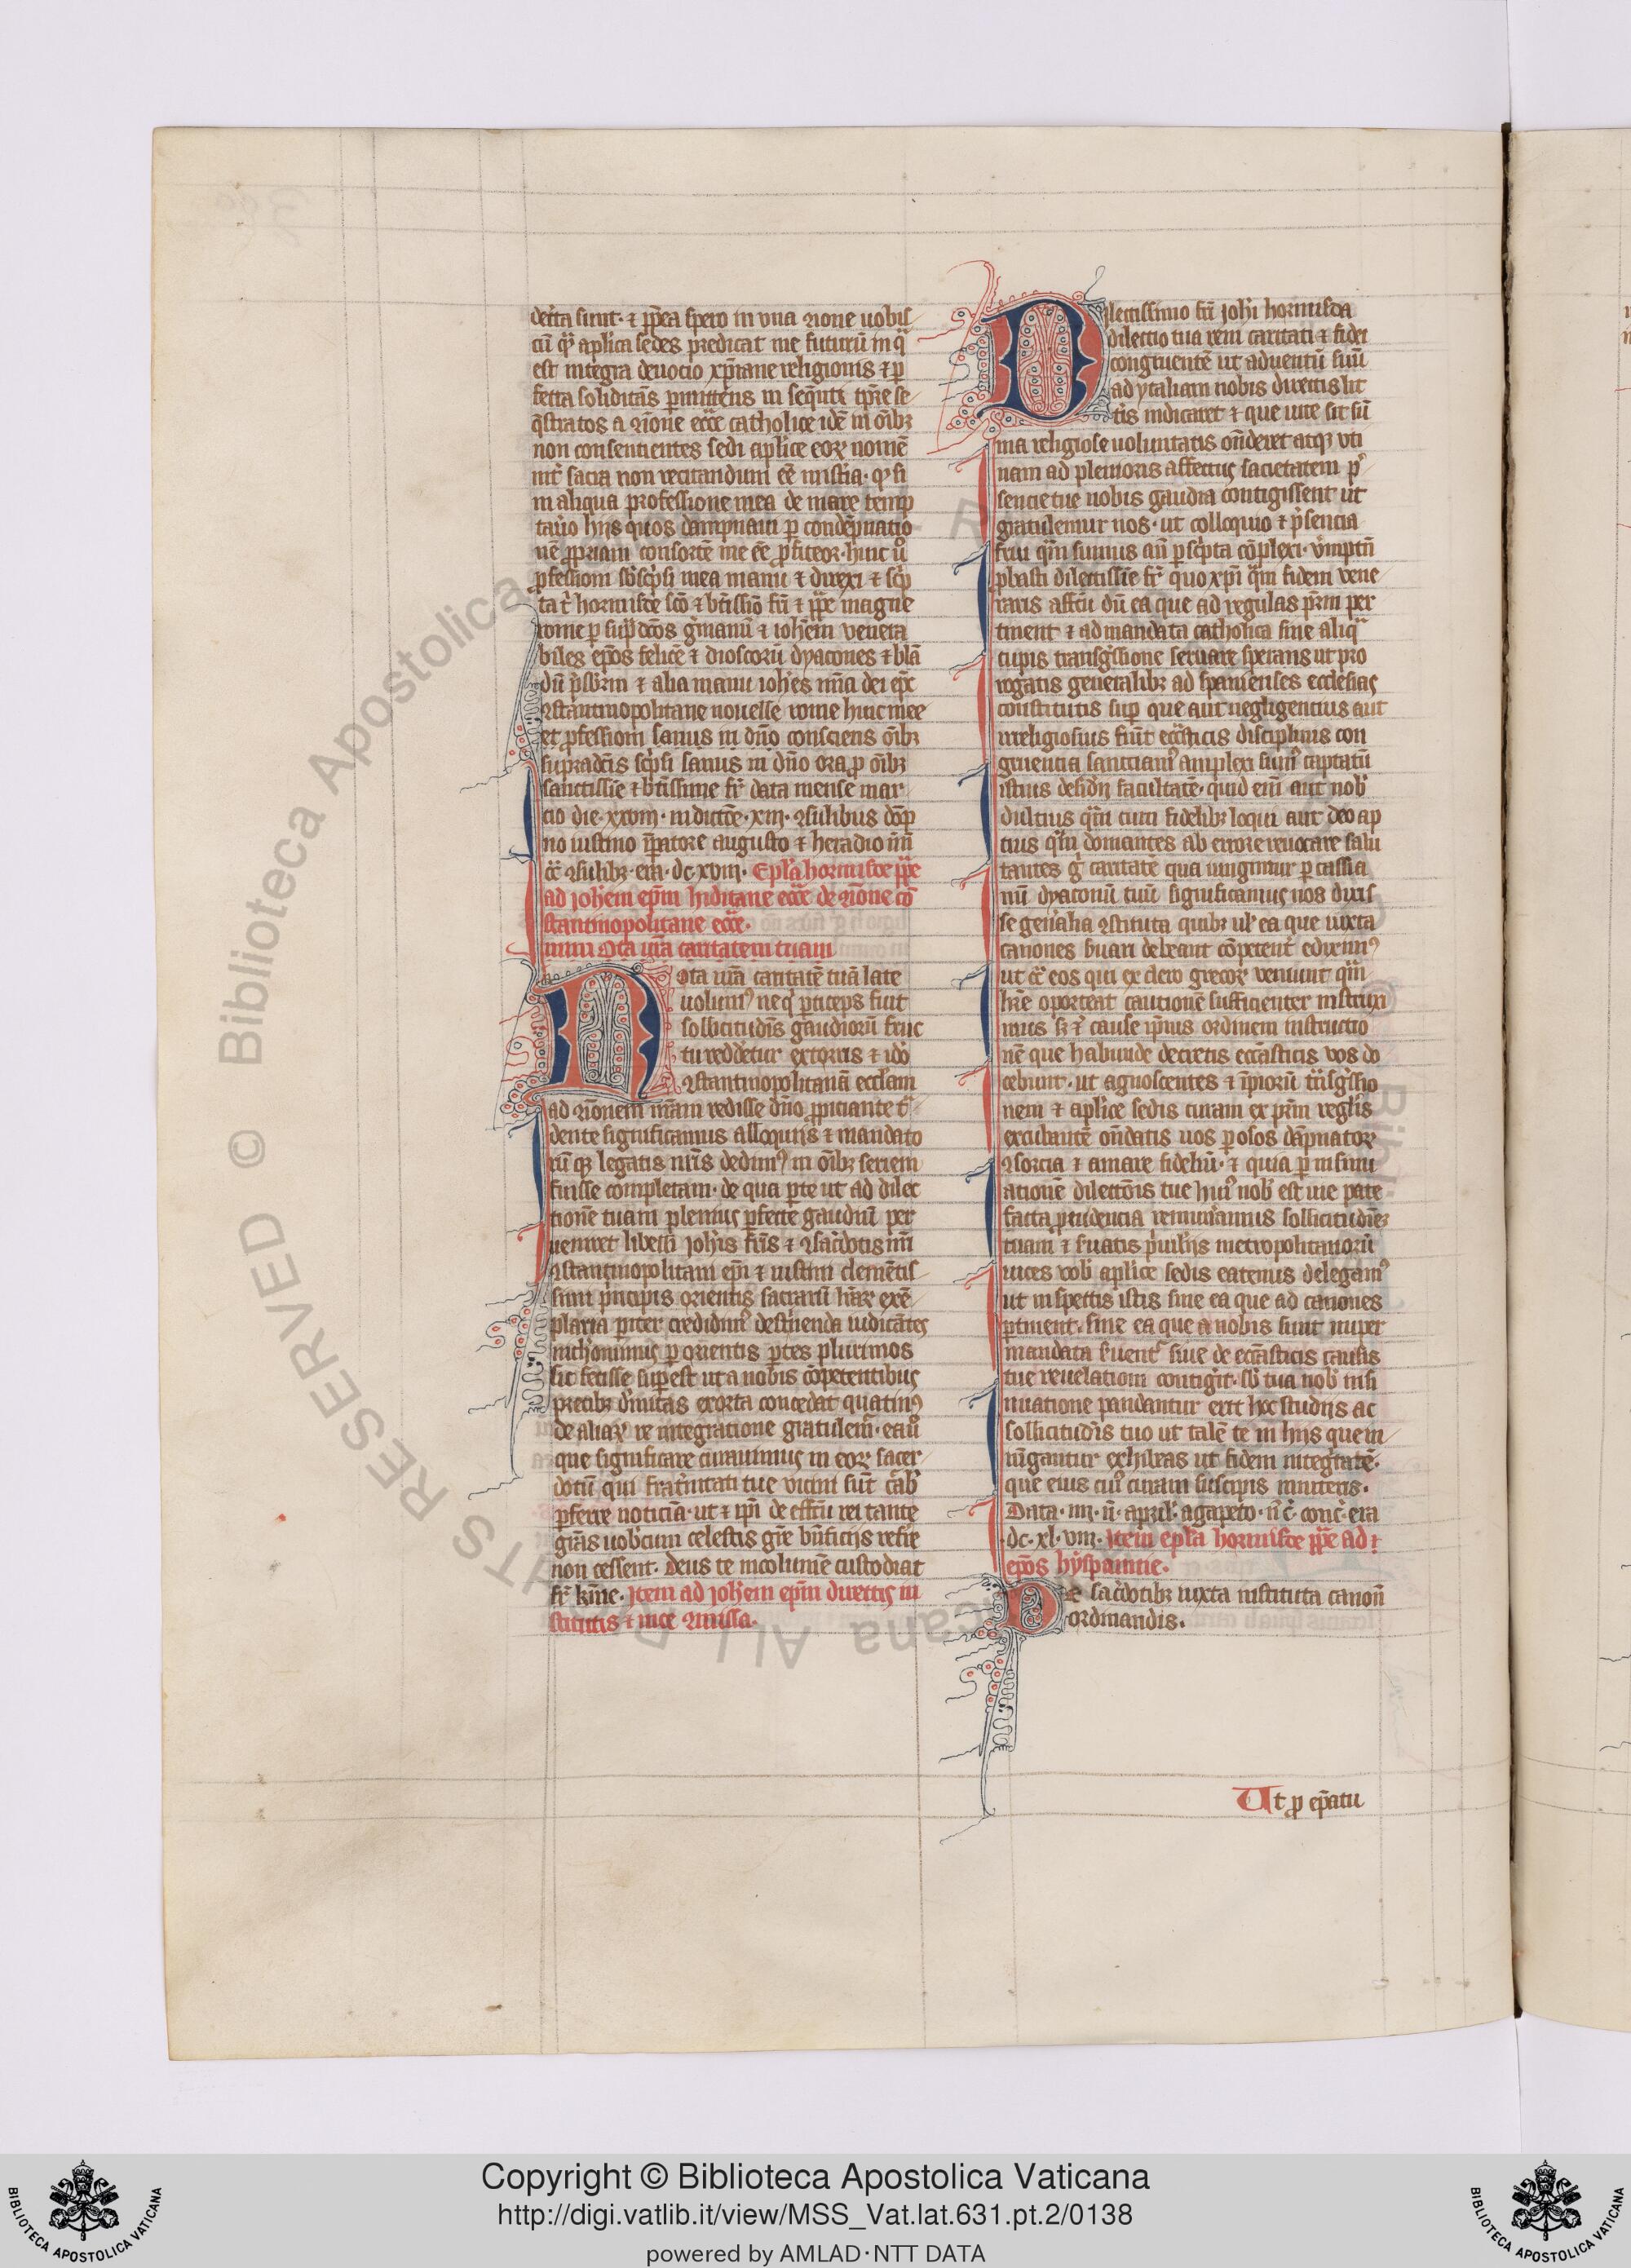 derta sunt · ⁊ ꝓpea spero in vna ꝯione uobis
cū q̄ aplica sedes predicat me futurū in q̄
est integra deuocio xp̄iane religionis ⁊ ꝑ
fecta soliditas ꝓmittens in sequēti tp̄re se
q̄stratos a ꝯione ecc̄e catholice idē in oīb;
non consencientes sedi aplice eoꝝ nomē
int̄ sacra non recitandum eē mistia · qꝫ si
in aliqua professione mea de mare temp
tauo hijs quos dampnaui ꝑ condēpnatio
nē ꝓpriam consortē me eē ꝓfiteor · hinc ū
ꝓfession sbscpsi mea manu ⁊ direxi ⁊ scp
ta t̄ hormisde sc̄o ⁊ btissio frī ⁊ pp̄e magne
rome ꝑ sup̄ dcōs ḡmanū ⁊ ioh̄em venera
biles ep̄os felicē ⁊ dioscorū dyacones ⁊ blā
dū p̄sbrm ⁊ alia manu ioh̄es m̄ia dei ep̄c
ꝯstantinopolitane nouelle rome hinc mee
et ꝓfessioni sanus in dn̄o consciens oīb;
supradcīs scpsi sanus in dn̄o ora ꝓ oīb;
sanctissīe ⁊ btissime fr̄ data mense mar
cio die · xxviii · indictōe · xiii · ꝯsulibus dōp
no iustino īpatore augusto ⁊ heradio uiī
c̄c ꝯsulib; · era · dc · xviii · Epla hormisde pp̄e
ad ioh̄em ep̄m hiditane ecc̄e de ꝯione cō
stantinopolitane ecc̄e ·
Ota ur̄a caritatem tuam
Ota ur̄a caritatē tuā late
uolum⁹ neq̄ ꝑticeps fiat
sollicitudīs gaudiorū fruc
tu reddetur extorris ⁊ idō
ꝯstantinopolitanā eccl̄iam
ad ꝯionem nr̄am redisse dn̄o ꝓpiciante t̄
dente significamus alloquiis ⁊ mandato
rū qꝫ legatis nr̄is dedim⁹ in oīb; seriem
fuisse completam · de qua ꝑte ut ad dilec
tionē tuam plenius ꝑfecte gaudiū per
ueniret libell̄ ioh̄is fr̄is ⁊ ꝯsac̄dotis nr̄i
ꝯstantinopolitani ep̄i ⁊ iustini clemētis
simi p̄ncipis orientis sacrariū har̄ exē
plaria ꝑiter credidim⁹ destīenda iudicātes
nichominus ꝑ orientis ꝑtes plurimos
sic fecisse suꝑest ut a nobis cōpetentibus
precib; diuinitas exorta concedat quatin⁹
de aliaꝝ re integratione gratulem̄ · eaū
que significare curauimus in eoꝝ sacer
dotū qui fraternitati tue vicini sūt c̄ab
ꝑferre noticiā · ut ⁊ ipī de effcū rei tante
grās uobcum celestis gr̄e bn̄ficijs refre
non cessent · Deus te incolumē custodiat
fr̄ kmc · Item ad ioh̄em ep̄m directis in
stitutis ⁊ uice ꝯmissa ·
Dilectissimo frī johī hormisda
dilectio tua rem caritati ⁊ fidei
congruentē ut aduentū suū
ad ytaliam nobis directis lit
tīs indicaret ⁊ que uite sit sū
ma religiose uoluntatis on̄deret atqꝫ uti
nam ad plenioris affectus sacietatem p̄
sencie tue nobis gaudia contigissent ut
gratulemur nos · ut colloquio ⁊ p̄sencia
frui qm̄ sumus an̄ ꝑ scpta cōplexi · vm̄ptn̄
ꝓbasti dilectissīe fr̄ quo xp̄i qm̄ fidem vene
raris affcū dū ea que ad regulas pr̄m per
tinent ⁊ ad mandata catholica sine aliq̄
cupis transg̊ssione seruare sperans ut pro
rogatis generalib; ad hyspanienses ecclesias
constitutis sup que aut negligencius aut
irreligiosius fiūt ecc̄asticis disciplinis con
gruencia sancciam⁹ amplexi sum⁹ captatū
istius desidij facultatē · quid em̄ aut nob̄
dulcius qm̄ cum fidelib; loqui aut deo ap
tius qm̄ domantes ab errore reuocare salu
tantes g̊ caritatē qua iungimur ꝑ cassia
nū dyaconū tuū significamus nos dixis
se gen̄alia ꝯstituta quib; ul̄ ea que iuxta
canones buari debeant cōpetent̄ edixim⁹
ut c̄ eos qui ex clero grecoꝝ ueniunt qm̄
hr̄e oporteat cautionē sufficienter instruxi
mus s; ⁊ cause ipīus ordinem instructio
nē que habunde decretis ecc̄asticis vos do
cebunt · ut agnoscentes ⁊ īpiorū tn̄sg̊ssio
nem ⁊ aplice sedis curam ex pr̄m regl̄is
excubantē on̄datis uos ꝑ osos dāpnatoꝝ
ꝯsorcia ⁊ amare fideliū · ⁊ quia ꝑ insinu
ationē dilectōis tue hui⁹ nob̄ est uie pate
facta ꝓuidencia remun̄amus sollicitudiēz
tuam ⁊ suatis p̄uilegijs metropolitanorū
uices vob̄ aplice sedis eatenus delegam⁹
ut inspectis istis siue ea que ad canones
ꝑtinent · siue ea que a nobis sunt nuper
mandata suent̄ siue de ecc̄asticis causis
tue reuelationi contigit̄ · sb̄ tua nob̄ insi
nuatione pandantur erit hoc studijs ac
sollicitudīs tuo ut talē te in hijs que in
iūgantur exhibeas ut fidem integ̊tatē ·
que eius cui⁹ curam suscipis imiteris ·
Data · iiii · n̄ · april̄ · agapeto · v̄ c̄ · conc̄ · era
· dc · xl · viii · Item epl̄a hormisde pp̄e ad ⁊
ep̄os hyspainie ·
De sac̄dotib; iuxta instituta canon̄
ordinandis ·
Ut ꝓ ep̄atu
Copyright © Biblioteca Apostolica Vaticana
http://digi.vatlib.it/view/MSS_Vat.lat.631.pt.2/0138
powered by AMLAD·NTT DATA
BIBLIOTECA APOSTOLICA VATICANA
BIBLIOTECA APOSTOLICA VATICANA